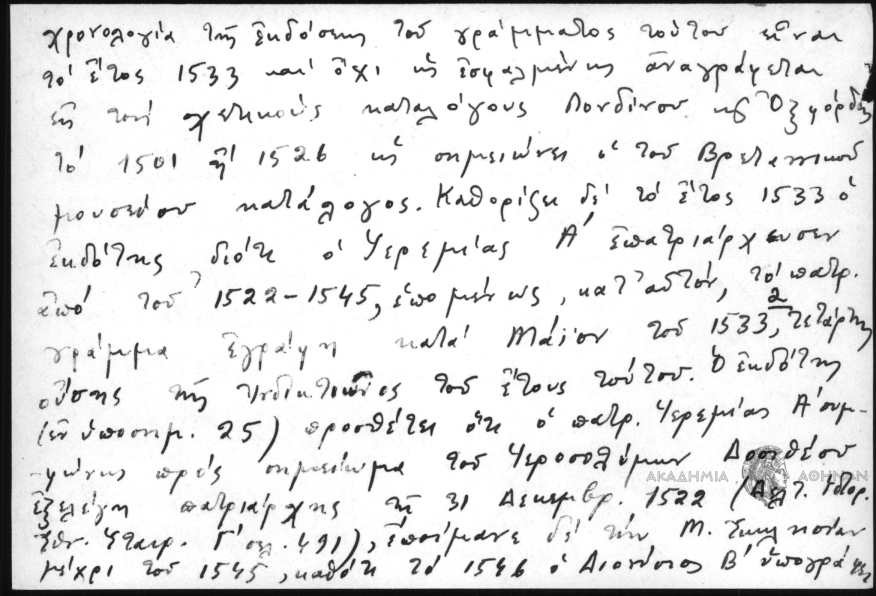 χρονολογία τῆς ἐκδόσεως τοῦ γράμματος τούτου εἶναι
τό ἔτος 1533 καί ὄχι ὡς ἐσφαλμένως ἀναγράφεται
εἰς τούς σχετικούς καταλόγους Λονδίνου κ Ὀξφόρδης
τό 1501 ἤ 1526 ὡς σημειώνει ὁ τοῦ Βρετανικοῦ
μουσείου κατάλογος. Καθορίζει δέ τό ἔτος 1533 ὁ
ἐκδότης διότι ὁ Ἱερεμίας Α' ἐπατριάρχευσεν
ἀπό τοῦ 1522-1545, ἑπομένως, κατ' αὐτόν, τό πατρ.
γράμμα ἐγράφη κατά Μάϊον τοῦ 1533, 2 τετάρτης
οὔσης τῆς Ἰνδικτιῶνος τοῦ ἔτους τούτου. Ὁ ἐκδότης
(ἐν ὑποσημ. 25) προσθέτει ὅτι ὁ πατρ. Ἱερεμίας Α' συμ-
-φώνως πρός σημείωμα τοῦ Ἱεροσολύμων Δοσιθέου
ΑΚΑΔΗΜΙΑ ΑΘΗΝΩΝ
ἐξελέγη πατριάρχης τῇ 31 Δεκεμβρ. 1522 (Δελτ. Ἱστορ.
Ἐθν. Ἑταιρ. Γ' σελ. 491), ἐποίμανε δέ τήν Μ. Ἐκκλησίαν
μέχρι τοῦ 1545, καθότι τό 1546 ὁ Διονύσιος Β' ὑπογράφει